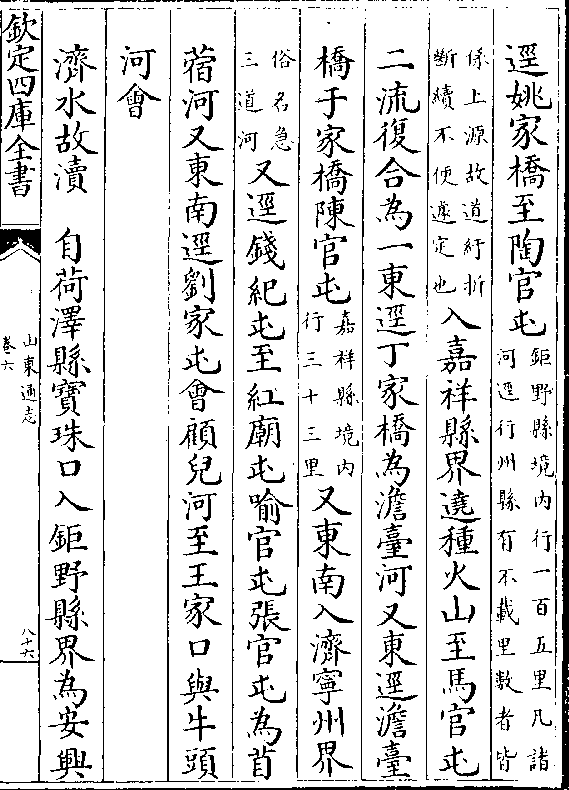 逕姚家橋至陶官屯鉅野縣境内行一百五里凡諸河逕行州縣有不載里數者皆
係上源故道紆折斷續不便遽定也入嘉祥縣界遶種火山至馬官屯
二流復合為一東逕丁家橋為澹臺河又東逕澹臺
橋于家橋陳官屯嘉祥縣境内行三十三里又東南入濟寜州界
俗名急三道河又逕錢紀屯至紅廟屯喻官屯張官屯為苜
蓿河又東南逕劉家屯會顧兒河至王家口與牛頭
河會
濟水故瀆　自荷澤縣寶珠口入鉅野縣界為安興
欽定四庫全書
山東通志
卷六
八十六